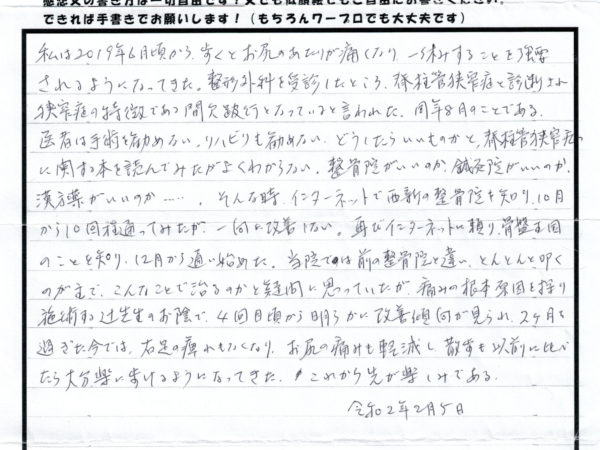 感想文の書き方は一切自由です！文でも似顔絵でもご自由にお書きください。
できれば手書きでお願いします！（もちろんワープロでも大丈夫です）
私は2019年6月頃から、歩くとお尻のあたりが痛くなり、一休みすることを強要
されるようになってきた。整形外科を受診したところ、脊柱管狭窄症と診断され
狭窄症の特徴である間欠跛行となっていると言われた。同年8月のことである。
医者は手術を勧めない、リハビリも勧めない、どうしたらいいものかと、脊柱管狭窄症
に関する本を読んでみたがよくわからない。整骨院がいいのか、鍼灸院がいいのか、
漢方薬がいいのか……。そんな時、インターネットで西新の整骨院を知り、10月
から10回程通ってみたが、一向に改善しない。再びインターネットに頼り、骨盤王国
のことを知り、12月から通い始めた。当院では前の整骨院と違い、とんとんと叩く
のが主で、こんなことで治るのかと疑問に思っていたが、痛みの根本原因を探り
施術する辻先生のお陰で、4回目頃から明らかに改善傾向が見られ、2ヶ月を
過ぎた今では、右足の痺れもなくなり、お尻の痛みも軽減し、散歩も以前に比べ
たら大分楽に歩けるようになってきた。これから先が楽しみである。
令和2年2月5日